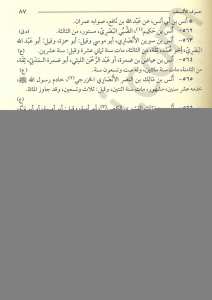 حرف الألف ٨٧
• أنس بن أبي أنس، عن عبد الله بن نافع، صوابه عمران.
٥٦٢- أنس بن حكيم، الضَّبِّي البَصْري، مستور، من الثالثة. (د ق)
٥٦٣- أنس بن سيرين الأنصاري، أبو موسى وقيل: أبو حمزة، وقيل: أبو عبد الله
البصري، أخو محمد، ثقة، من الثالثة، مات سنة ثماني عشرة وقيل: سنة عشرين. (ع)
٥٦٤- أنس بن عياض بن ضمرة، أو عبد الرَّحمن الليثي، أبو ضمرة المدني، ثقة،
من الثامنة، مات سنة مائتين، وله ست وتسعون سنة. (ع)
٥٦٥- أنس بن مالك بن النضر الأنصاري الخزرجي، خادم رسول الله ﷺ،
خدمه عشر سنين، مشهور، مات سنة اثنتين، وقيل: ثلاث وتسعين، وقد جاوز المائة. (ع)